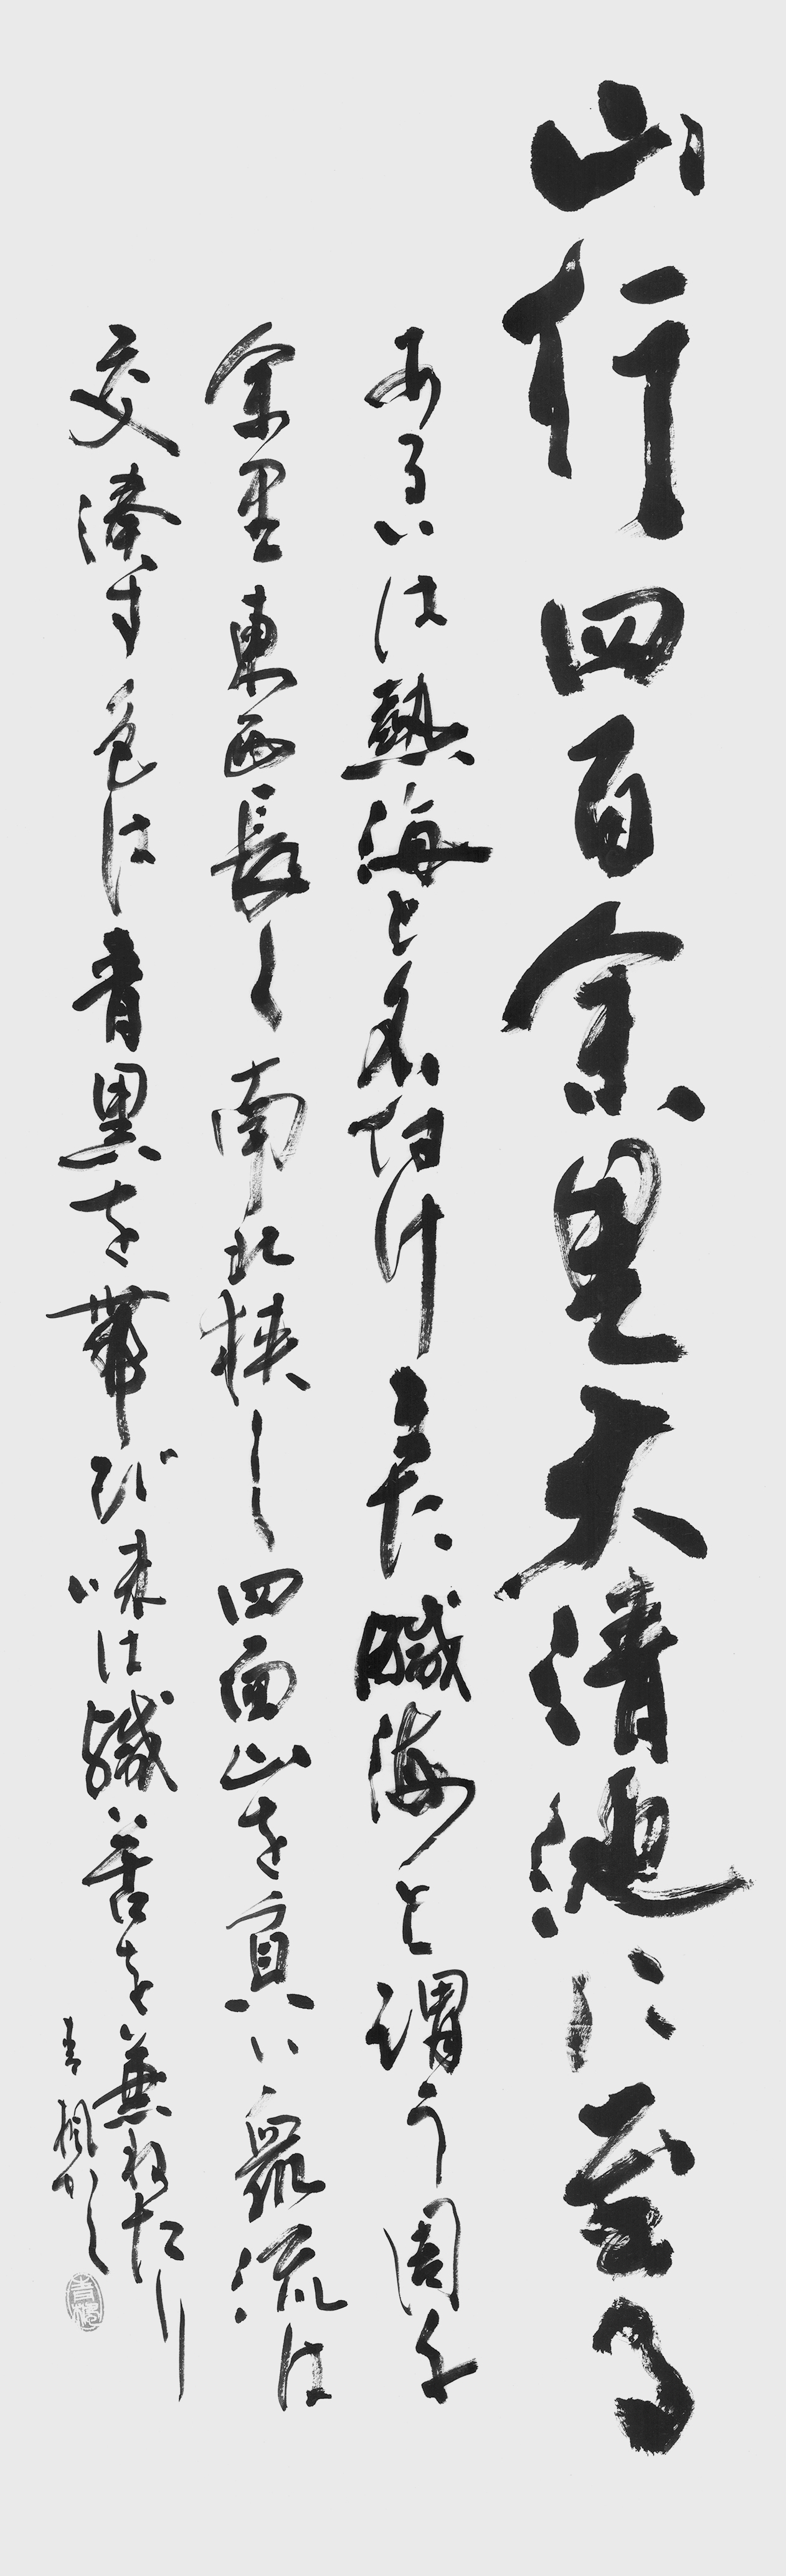 山行四百余里大清池に至る
あるいは熱海と名付けまた鹹海と謂う周千
余里東西長く南北狭し四面山を負い衆流は
交湊す色は青黒を帯び味は鹹苦を兼ねたり
青楓かく